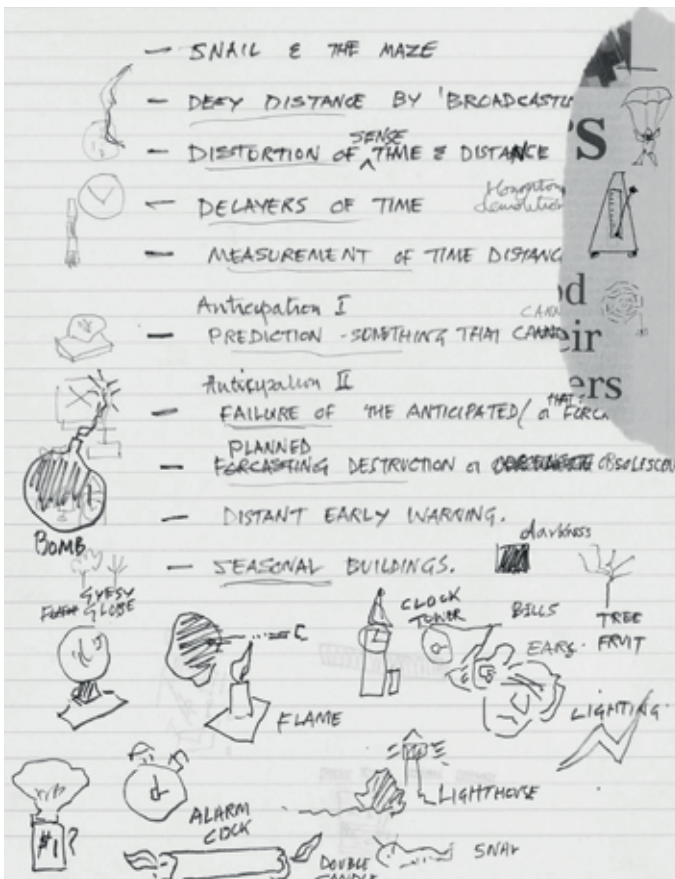 — SNAIL & THE MAZE
— DEFY DISTANCE BY 'BROADCAST
— DISTORTION OF SENSE TIME & DISTANCE
S
— DELAYERS OF TIME
demolition
— MEASUREMENT OF TIME DISTANC
Anticipation I
— PREDICTION - SOMETHING THAT CANNO
od
eir
ers
Anticipation II
— FAILURE OF THE ANTICIPATED/ or THAT: FORCA
PLANNED
— FORCASTING DESTRUCTION or OBSOLESCEN
— DISTANT EARLY WARNING.
BOMB
darkness
— SEASONAL BUILDINGS.
GLOBE
CLOCK TOWER
BILLS
TREE FRUIT
EARS.
FLAME
LIGHTING.
LIGHTHOUSE
ALARM CLOCK
$1?
DOUBLE CANDLE
SNAIL